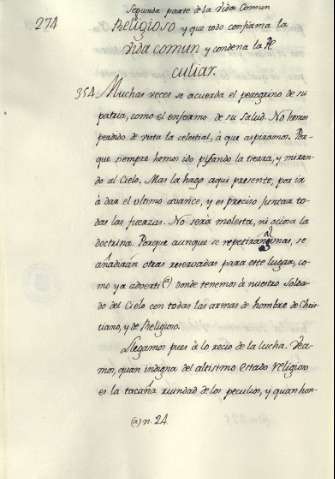 Segunda parte de la Vida Comun
274 Religioso y que todo confirma la
vida comun y condena la Pe
culiar.
354. Muchas veces se acuerda el peregrino de su
patria, como el enfermo de su salud. No hemos
perdido de vista la celestial, à que aspiramos. Por-
que siempre hemos ido pisando la tierra, y miran-
do al Cielo. Mas la hago aqui presente, por ir
à dar el ultimo avance, y es preciso juntar to-
das las fuerzas. No serà molesta, ni acima la
doctrina. Porque aunque se repetiràn algunas, se
añadiràn otras reservadas para este lugar, co-
mo ya advertì (a) donde tenemos à nuestro Solda-
do del Cielo con todas las armas de hombre de Chris-
tiano, y de Religioso.
Llegamos pues à lo recio de la lucha. Vea-
mos, quan indigna del altissimo estado religioso
es la tacaña ruindad de los peculios, y quan hon-
(a) n. 24.